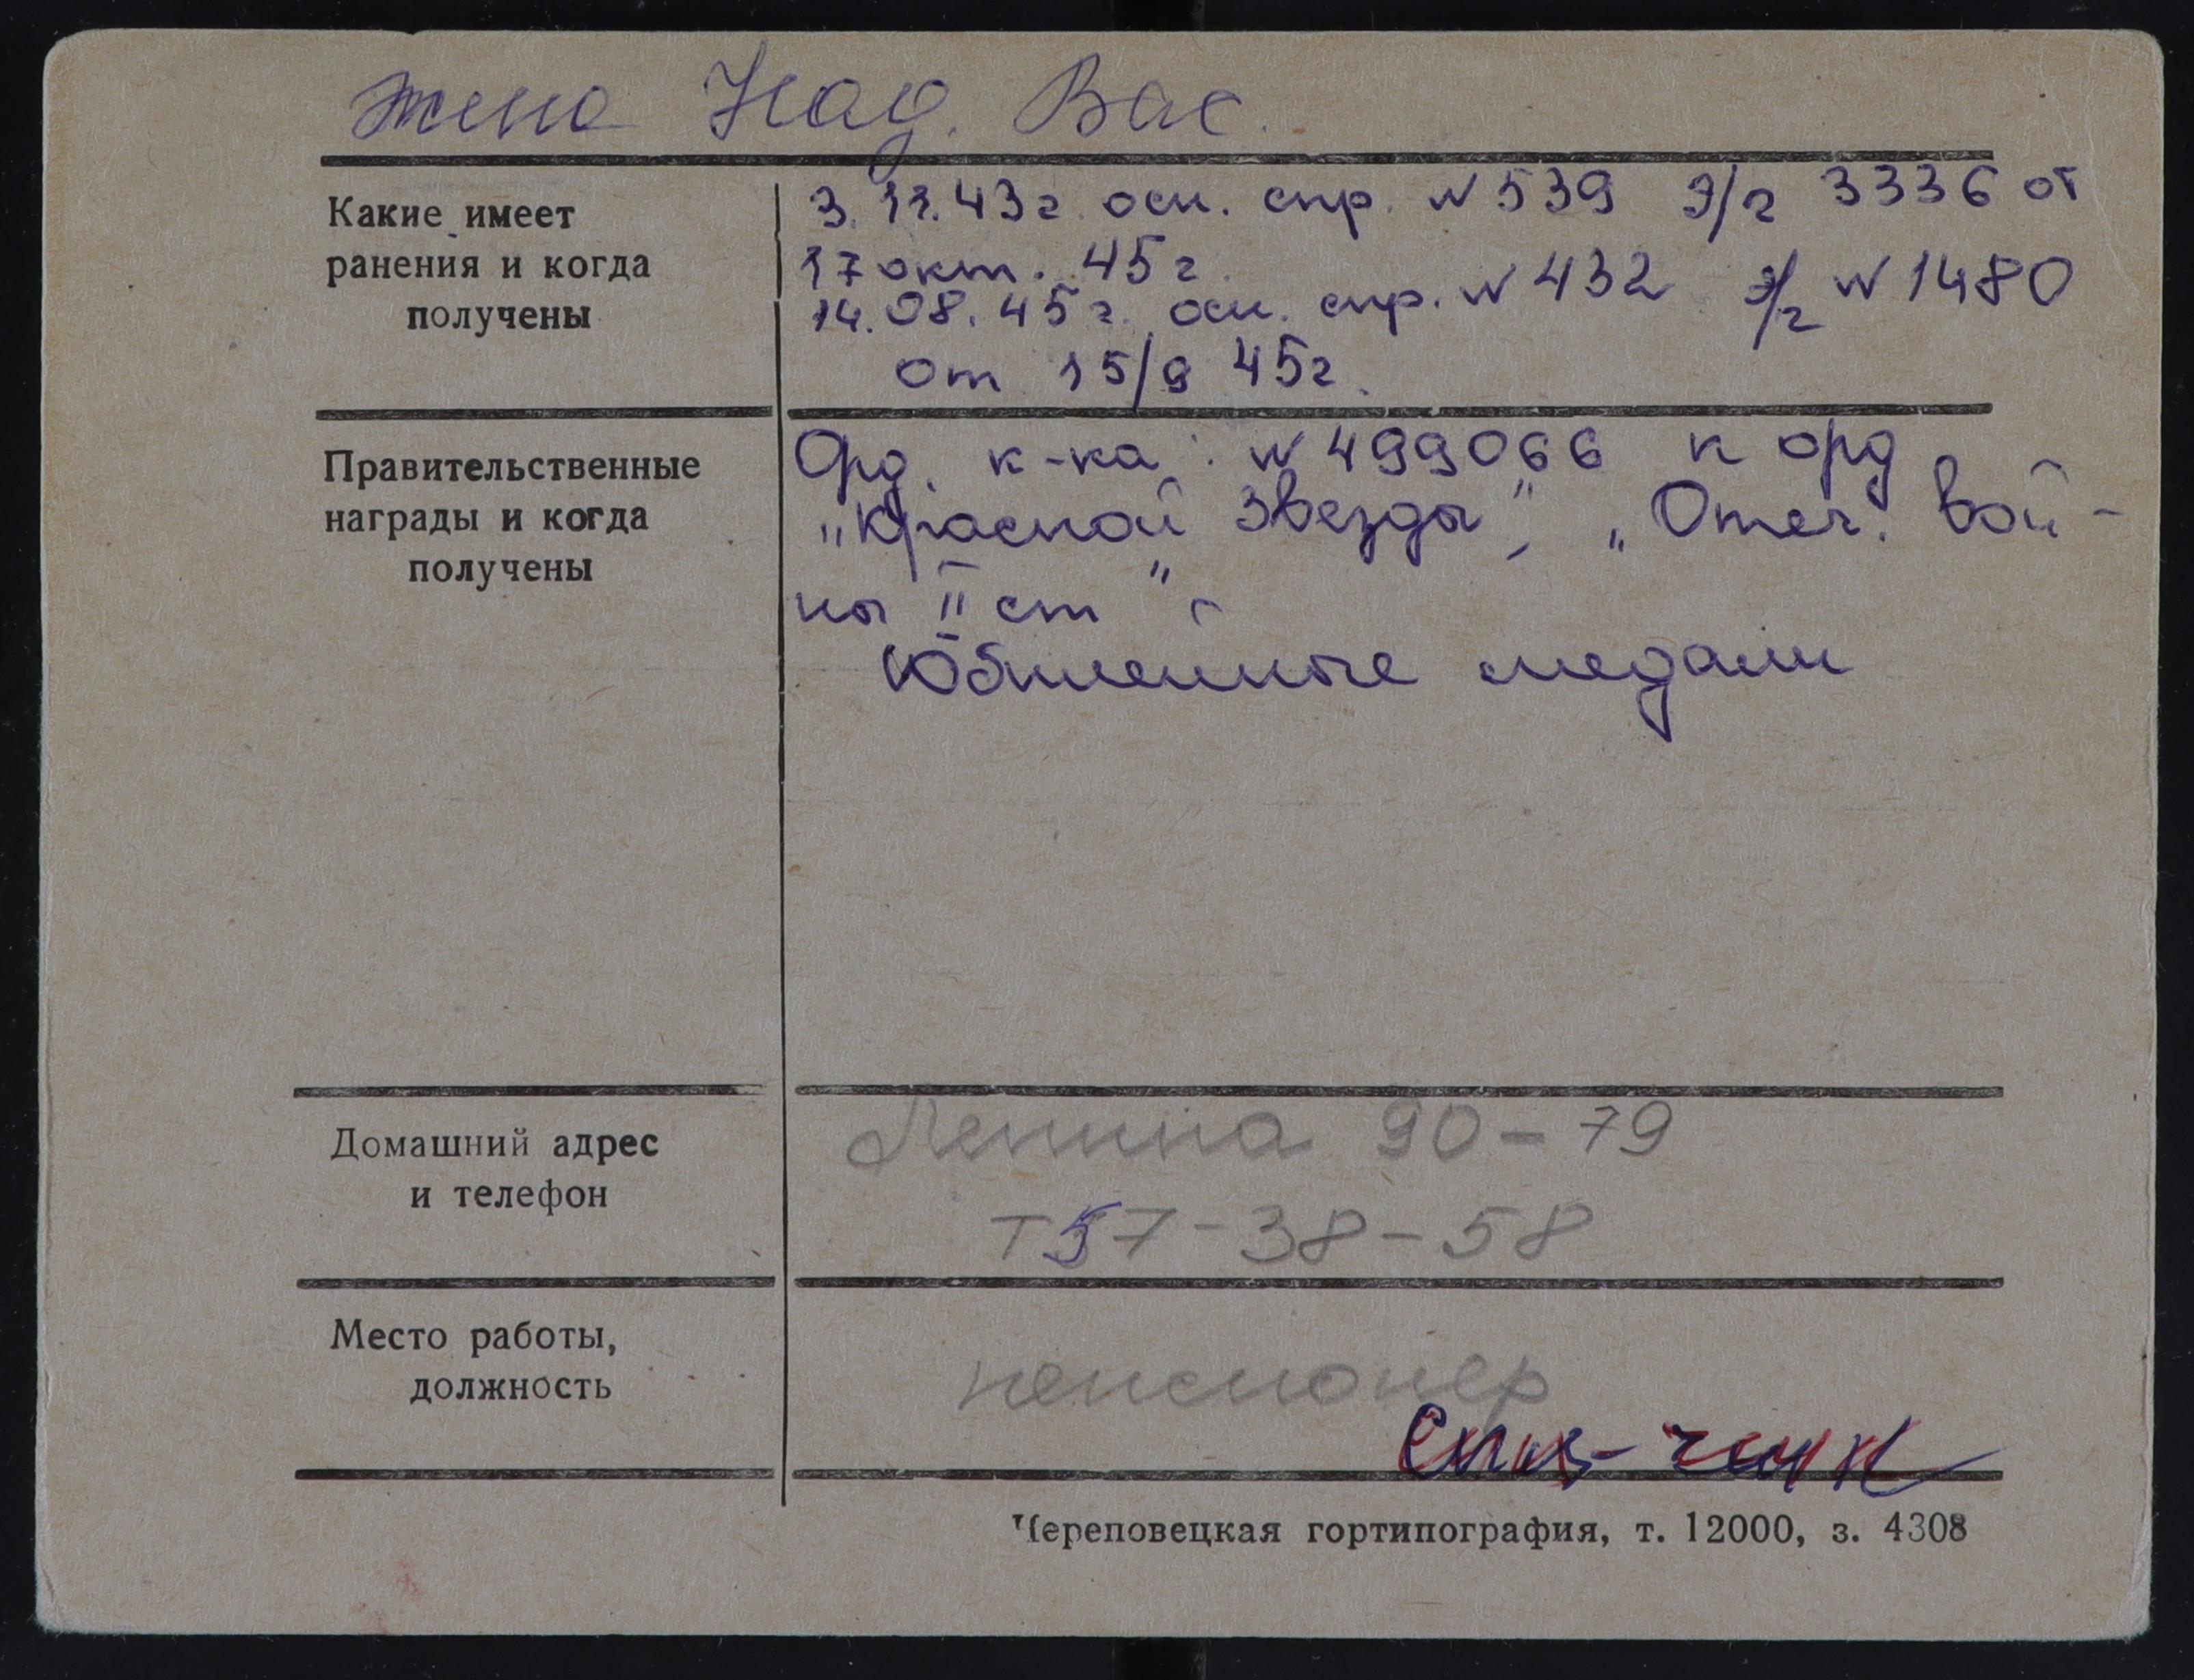 жена Над. Вас.
Какие имеет
ранения и когда
получены
3. 11. 43г. осн. спр. N 539 Э/г 3336 от
17 окт. 45г.
14. 08. 45г. осн. спр. N 432 Э/г N 1480
от 15/9 45г.
Правительственные
награды и когда
получены
Орд. к-ка: N 499066 к орд
„Красной Звезды", „Отеч. Вой-
ны II ст"
Юбилейные медали
Домашний адрес
и телефон
Ленина 90-79
т 57-38-58
Место работы,
должность
пенсионер
Череповецкая гортипография, т. 12000, з. 4308